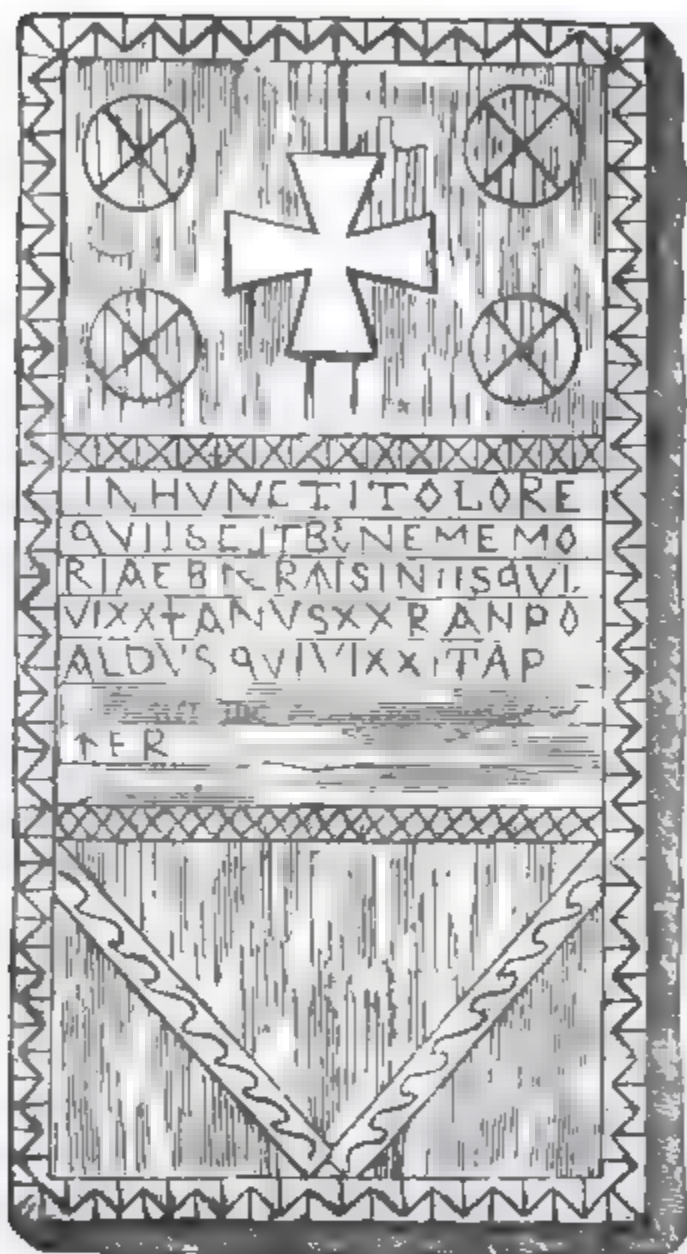 INHVNCTITOLORE
QVIISCITBONEMEMO
RIAE
VIXXTANVSXXRANPO
ALDVSQVIVIXXITAP
TER